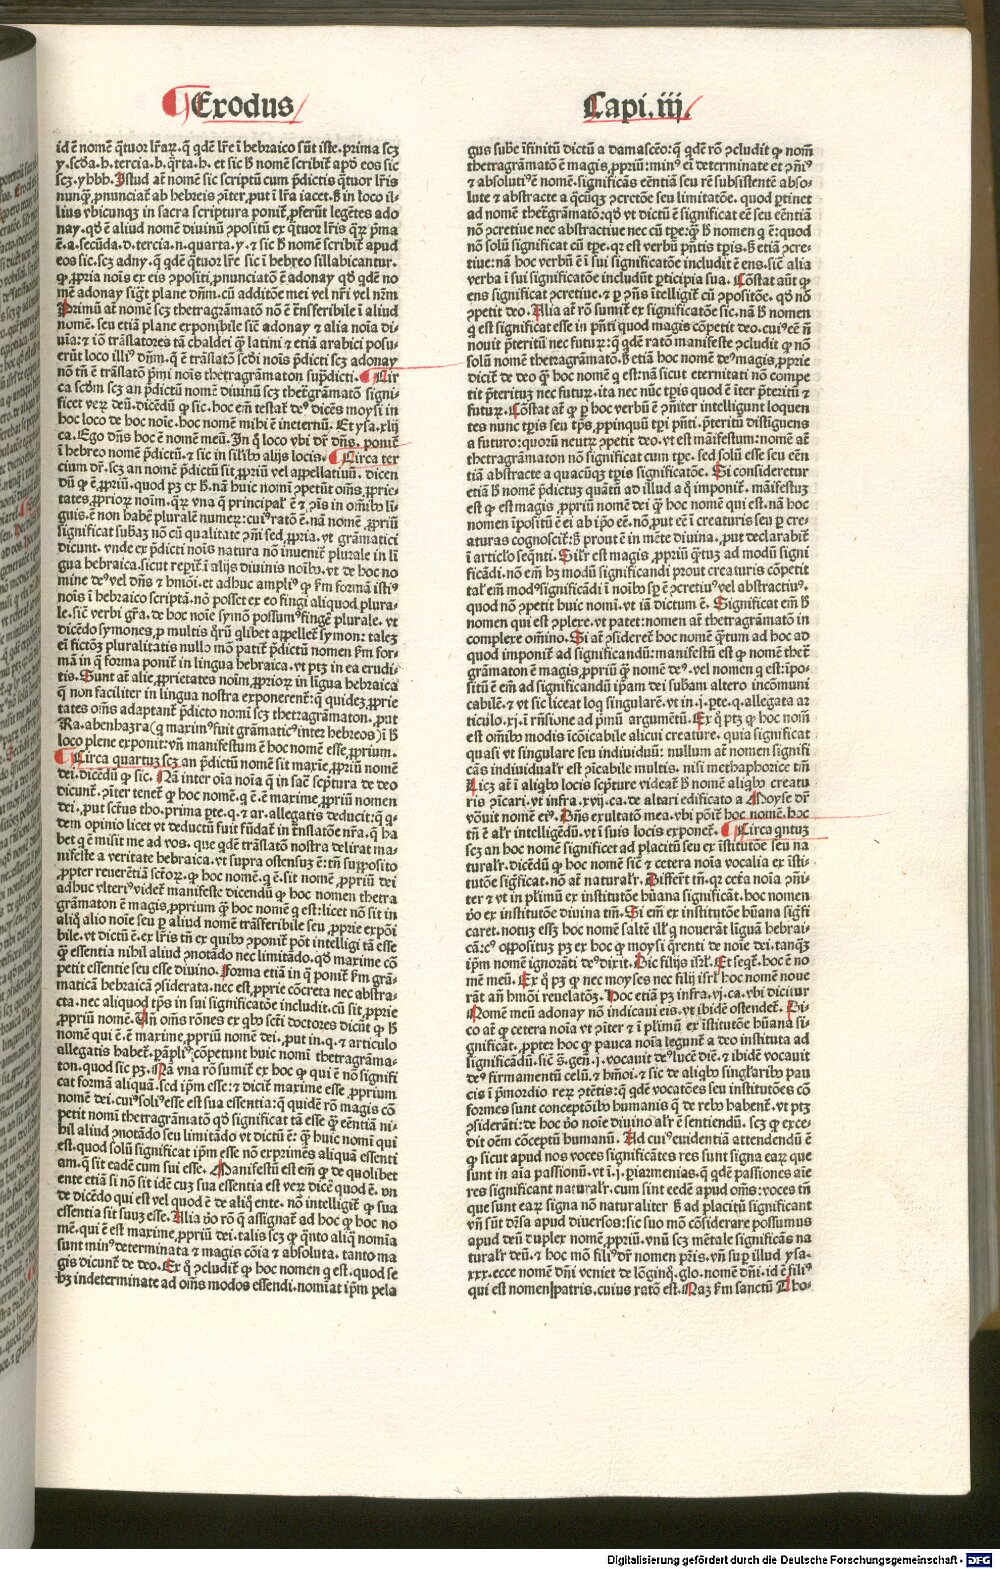 Exodus
Capi. iii.
id ē nomē q̄tuor lr̄aꝝ. q̄ qdē lr̄e ī hebraico sūt iste. prima scꝫ
y. scd̄a. h. tercia. b. q̄rta. h. et sic h̄ nomē scribit᷑ apd̓ eos sic
scꝫ. yhbh. Istud at̄ nomē sic scriptū cum p̄dictis q̄tuor lr̄is
nunq̄ ꝓnunciat᷑ ab hebreis ꝯiter. put ī lr̄a iacet. s̄ in loco il-
lius vbicunqꝫ in sacra scriptura ponit᷑ ꝓferūt legētes ado
nay. qd̓ ē aliud nomē divinū ꝯpositū ex q̄tuor lr̄is qꝝ p̄ma
ē. a. secūda. d. tercia. n. quarta. y. ⁊ sic h̄ nomē scribit᷑ apud
eos sic. scꝫ adny. q̄ qdē q̄tuor lr̄e sic ī hebreo sillabicantur.
ꝙ ꝓpria noīs ex eis ꝯpositi ꝓnunciatō ē adonay qd̓ qdē no
mē adonay sigt̄ plane dn̄m. cū additōe mei vel nr̄i vel nr̄m
Primū at̄ nomē scꝫ thetragrāmatō nō ē trāsferibile ī aliud
nomē. seu etiā plane exponibile sicut adonay ⁊ alia noīa di-
uīa: ⁊ iō trāslatores tā chaldei q̄ latini ⁊ etiā arabici posu-
erūt loco illiꝰ dn̄m. q̄ ē trāslatō scd̓i noīs p̄dicti scꝫ adonay
nō tn̄ ē trāslatō p̄mi noīs thetragrāmaton sup̄dicti. Cir
ca scd̓m scꝫ an p̄dictū nomē divinū scꝫ thet᷑grāmatō signi-
ficet veꝝ deū. dicēdū ꝙ sic. hoc em̄ testat᷑ deꝰ dicēs moysi in
hoc loco de hoc noīe. hoc nomē mihi ē ineternū. Et ysa. xlij
ca. Ego dn̄s hoc ē nomē meū. In q̄ loco vbi dr̄ dn̄s. ponit᷑
ī hebreo nomē p̄dictū. ⁊ sic in silībꝰ alijs locis. Circa ter
cium dr̄. scꝫ an nomē p̄dictū sit ꝓpriū vel appellatiuū. dicen
dū ꝙ ē ꝓpriū. quod pꝫ ex h̄. nā huic nomī ꝯpetūt om̄s ꝓprie-
tates ꝓprioꝝ noīm. qꝝ vna q̄ principal᷑ ē ⁊ ꝯīs in om̄ibꝰ li-
guis. ē non habē pluralē numeꝝ: cuiꝰ ratō ē. nā nomē ꝓpriū
significat subaꝫ nō cū qualitate ꝯmī sed ꝓpria. vt grāmatici
dicunt. vnde ex p̄dicti noīs natura nō inuenit᷑ plurale in lī
gua hebraica. sicut repit᷑ ī alijs diuinis noībꝰ. vt de hoc no
mine deꝰ vel dn̄s ⁊ hmōi. et adhuc ampliꝰ ꝙ ẜm formā istiꝰ
noīs ī hebraico scriptā. nō posset ex eo fingi aliquod plura-
le. sic̄ verbi gr̄a. de hoc noīe symō possumꝰ fingē plurale. vt
dicēdo symones. ꝓ multis qꝝ q̄libet appellet᷑ symon: taleꝫ
ei fictōꝫ pluralitatis nullo mō patit᷑ p̄dictū nomen ẜm for-
mā in q̄ forma ponit᷑ in lingua hebraica. vt ptꝫ in ea erudi-
tis. Sunt at̄ alie ꝓprietates noīm ꝓprioꝝ in ligua hebraica
q̄ non faciliter in lingua nostra exponerent᷑: q̄ quideꝫ ꝓprie
tates om̄s adaptant᷑ p̄dicto nomī scꝫ thetragrāmaton. put
Ra. abenhaꝫra (q̄ maximꝰ fuit grāmaticꝰ inteꝝ hebreos) ī h̄
loco plene exponit: vn̄ manifestum ē hoc nomē esse ꝓprium.
Circa quartuꝫ scꝫ an p̄dictū nomē sit maxīe ꝓpriū nomē
dei. dicēdū ꝙ sic. Nā inter oīa noīa q̄ in sac̄ scp̄tura de deo
dicunt᷑. ꝯiter tenet᷑ ꝙ hoc nomē. q̄ ē. ē maxime ꝓpriū nomen
dei. put sct̄us tho. prima pꝛte. q. ⁊ ar. allegatis deducit: q̄ q̄-
dem opinio licet vt deductū fuit fūdat᷑ in trāslatōe nr̄a. q̄ ha
bet q̄ ē misit me ad vos. que qdē trāslatō nostra delirat ma-
nifeste a veritate hebraica. vt supra ostensuꝫ ē: tn̄ supposito
ꝓpter reuerētiā sctōꝝ. ꝙ hoc nomē. q̄ ē. sit nomē ꝓpriū dei
adhuc vlteriꝰ videt᷑ manifeste dicendū ꝙ hoc nomen thetra
grāmaton ē magis ꝓprium q̄ hoc nomē q̄ est: licet nō sit in
aliq̄ alio noīe seu p̄ aliud nomē trāsferibile seu ꝓprie expōi
bile. vt dictū ē. ex lr̄is tn̄ ex quibꝰ ꝯponit᷑ pōt intelligi tā esse
q̄ essentia nihil aliud ꝯnotādo nec limitādo. qd̓ maxime cō
petit essentie seu esse divino. Forma etiā in q̄ ponit᷑ ẜm grā-
maticā hebraicā ꝯsiderata. nec est ꝓprie cōcreta nec abstra-
cta. nec aliquod tp̄s in sui significatōe includit. cū sit ꝓprie
ꝓpriū nomē. Un̄ om̄s rōnes ex qͥbꝰ scti doctores dicūt ꝙ h̄
nomē qui ē. ē maxime ꝓpriū nomē dei. put in. q. ⁊ articulo
allegatis habet᷑. ꝑampliꝰ cōpetunt huic nomī thetragrāma-
ton. quod sic pꝫ. Nā vna rō sumit᷑ ex hoc ꝙ qui ē nō signifi
cat formā aliquā. sed ip̄m esse: ⁊ dicit᷑ maxime esse ꝓprium
nomē dei. cuiꝰ soliꝰ esse est sua essentia: q̄ quidē rō magis cō
petit nomī thetragrāmatō qd̓ significat tā esse q̄ eēntiā ni-
hil aliud ꝯnotādo seu limitādo vt dictū ē: q̄ huic nomī qui
est. quod solū significat ip̄m esse nō exprimēs aliquā essenti
am. q̄ sit eadē cum sui esse. Manifestū est em̄ ꝙ de quolibet
ente etiā si nō sit idē cuꝫ sua essentia est veꝝ dicē quod ē. vn̄
de dicēdo qui est vel quod ē de aliq̄ ente. nō intelligit᷑ ꝙ sua
essentia sit suuꝫ esse. Alia ꝟo rō q̄ assignat᷑ ad hoc ꝙ hoc no
mē. qui ē est maxime ꝓpriū dei. talis scꝫ ꝙ qͣnto aliq̄ nomīa
sunt minꝰ determinata ⁊ magis cōia ⁊ absoluta. tanto ma
gis dicunt᷑ de deo. Ex q̄ ꝯcludit᷑ ꝙ hoc nomen q̄ est. quod se
hꝫ indeterminate ad om̄s modos essendi. nomīat ip̄m pela
gus sube īfinitū dictū a damascēo: q̄ qdē rō ꝯcludit ꝙ nom̄
thetragrāmatō ē magis ꝓpriū: minꝰ ei determinate et ꝯmīꝰ
⁊ absolutiꝰ ē nomē. significās eēntiā seu rē subsistentē abso-
lute ⁊ abstracte a q̄cūqꝫ ꝯcretōe seu limitatōe. quod ptinet
ad nomē thet᷑grāmatō: qd̓ vt dictū ē significat eē seu eēntiā
nō ꝯcretiue nec abstractiue nec cū tp̄e: q̄ h̄ nomen q ē: quod
nō solū significat cū tp̄e. qꝛ est verbū pn̄tis tp̄is. s̄ etiā ꝯcre-
tiue: nā hoc verbū ē ī sui significatōe includit ē ens. sic̄ alia
verba ī sui significatōe includūt pticipia sua. Cōstat aūt ꝙ
ens significat ꝯcretiue. ⁊ p ꝯn̄s ītelligit᷑ cū ꝯpositōe. qd̓ nō
ꝯpetit deo. Alia at̄ rō sumit᷑ ex significatōe sic. nā h̄ nomen
q est significat esse in pn̄ti quod magis cōpetit deo. cuiꝰ eē n̄
nouit p̄teritū nec futuꝝ: q̄ qdē ratō manifeste ꝯcludit ꝙ nō
solū nomē thetragrāmatō. s̄ etiā hoc nomē deꝰ magis ꝓprie
dicit᷑ de deo q̄ hoc nomē q est: nā sicut eternitati nō compe
tit p̄terituꝫ nec futuꝝ. ita nec nūc tp̄is quod ē īter p̄teritū ⁊
futuꝝ. Cōstat at̄ ꝙ p hoc verbū ē ꝯmiter intelligunt loquen
tes nunc tp̄is seu tp̄s ꝓpinquū tp̄i pn̄ti. p̄teritū distiguens
a futuro: quoꝝ neutꝝ ꝯpetit deo. vt est māifestum: nomē at̄
thetragrāmaton nō significat cum tp̄e. sed solū esse seu eēn
tiā abstracte a quacūqꝫ tp̄is significatōe. Si consideretur
etiā h̄ nomē p̄dictuꝫ quātū ad illud a q̄ imponit᷑. māifestuꝫ
est ꝙ est magis ꝓpriū nomē dei q̄ hoc nomē qui est. nā hoc
nomen īpositū ē ei ab ip̄o eē. nō put eē ī creaturis seu p cre-
aturas cognoscit᷑: s̄ prout ē in mēte divina. put declarabit᷑
ī articlo seq̄nti. Silr̄ est magis ꝓpriū q̄tuꝫ ad modū signi
ficādi. nō em̄ hꝫ modū significandi prout creaturis cōpetit
tal᷑ em̄ modꝰ significādi ī noībꝰ sp̄ ē ꝯcretiuꝰ vel abstractiuꝰ.
quod nō ꝯpetit huic nomī. vt iā dictum ē. Significat em̄ h̄
nomen qui est ꝯplexe. vt patet: nomen at̄ thetragrāmatō in
complexe om̄ino. Si at̄ ꝯsideret᷑ hoc nomē q̄tum ad hoc ad
quod imponit᷑ ad significandū: manifestū est ꝙ nomē thet᷑
grāmaton ē magis ꝓpriū q̄ nomē deꝰ. vel nomen q est: īpo-
sitū ē em̄ ad significandū ip̄am dei subam altero incōmuni
cabilē. ⁊ vt sic liceat loq̄ singularē. vt in. j. pte. q. allegata ar
ticulo. xj. ī rn̄sione ad p̄mū argumētū. Ex q̄ ptꝫ ꝙ hoc nom̄
est om̄ibꝰ modis īcōicabile alicui creature. quia significat
quasi vt singulare seu indiuiduū: nullum at̄ nomen signifi
cās indiuidualr̄ est ꝯicabile multis. nisi methaphorice tm̄
Licꝫ at̄ ī aliqͥbꝰ locis scp̄ture videat᷑ h̄ nomē aliqͥbꝰ creatu
ris ꝯicari. vt infra. xvij. ca. de altari edificato a Moyse dr̄
vōuit nomē eiꝰ. Dn̄s exultatō mea. vbi pōit᷑ hoc nomē. hoc
tn̄ ē alr̄ intelligēdū. vt ī suis locis exponet᷑. Circa qntuꝫ
scꝫ an hoc nomē significet ad placitū seu ex īstitutōe seu na
turalr̄. dicēdū ꝙ hoc nomē sic̄ ⁊ cetera noīa vocalia ex īsti-
tutōe sigficat. nō at̄ naturalr̄. Differt tn̄. qꝛ cet̄a noīa ꝯmi-
ter ⁊ vt in plimū ex institutōe hūana significāt. hoc nomen
ꝟo ex institutōe divina tm̄. Si em̄ ex institutōe hūana sigfi
caret. notuꝫ essꝫ hoc nomē saltē ill᷑ q̄ nouerāt liguā hebrai-
cā: cꝰ oppositūꝫ pꝫ ex hoc ꝙ moysi q̄renti de noīe dei. tanqꝫ
ip̄m nomē ignorāti deꝰ dixit. Dic filijs isrl᷑. Et seqt᷑. hoc ē no
mē meū. Ex q̄ pꝫ ꝙ nec moyses nec filij isrl᷑ hoc nomē noue
rāt an̄ hmōi reuelatōꝫ. Hoc etiā pꝫ infra. vj. ca. vbi dicitur
Nomē meū adonay nō indicaui eis. vt ibidē ostendet᷑. Di-
co at̄ ꝙ cetera noīa vt ꝯiter ⁊ ī plimū ex īstitutōe hūana si-
gnificāt. ꝓpter hoc ꝙ pauca noīa legunt᷑ a deo instituta ad
significādū. sic̄ s̄. gen̄. j. vocauit deꝰ lucē diē. ⁊ ibidē vocauit
deꝰ firmamentū celū. ⁊ hmōi. ⁊ sic de aliqͥbꝰ singlaribꝰ pau
cis ī p̄mordio reꝝ ꝯtētis: q̄ qdē vocatōes seu institutōes cō
formes sunt conceptōibꝰ humanis q̄ de rebꝰ habent᷑. vt ptꝫ
ꝯsiderāti: de hoc ꝟo noīe divino alr̄ ē sentiendū. scꝫ ꝙ exce-
dit oēm cōceptū humanū. Ad cuiꝰ euidentiā attendendū ē
ꝙ sicut apud nos voces significātes res sunt signa eaꝝ que
sunt in aīa passionū. vt ī. j. piarmenias. q̄ qdē passiones aīe
res significant naturalr̄. cum sint eedē apud om̄s: voces tn̄
que sunt eaꝝ signa nō naturaliter s̄ ad placitū significant
vn̄ sūt diꝟsa apud diuersos: sic suo mō cōsiderare possumus
apud deū duplex nomē ꝓpriū. vnū scꝫ mētale significās na
turalr̄ deū. ⁊ hoc mō filiꝰ dr̄ nomen pr̄is. vn̄ suꝑ illud ysa-
xxx. ecce nomē dn̄i veniet de lōginqͦ. glo. nomē dn̄i. id ē filiꝰ
qui est nomen patris. cuius ratō est. Naꝫ ẜm sanctū Tho-
Digitalisierung gefördert durch die Deutsche Forschungsgemeinschaft - DFG